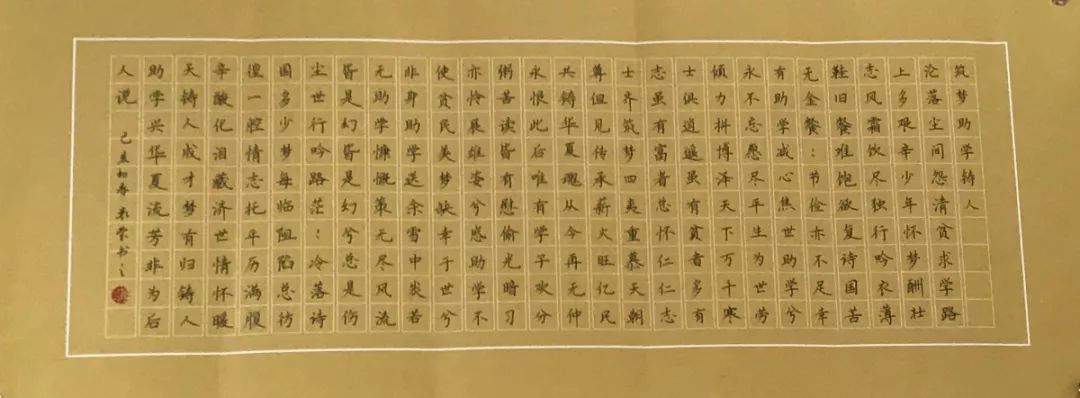 筑梦助学铸人
沦落尘间怨清贫求学路
上多艰辛少年怀梦酬壮
志风霜饮尽独行吟衣薄
鞋旧餐难饱欲复诗国苦
无金餐：节俭亦不足幸
有助学减心焦世助学兮
永不忘愿尽平生为世劳
倾力拼博泽天下万千寒
士俱逍遥虽有贫者多有
志虽有富者总怀仁仁志
士齐筑梦四夷重慕天朝
尊但见传承薪火旺亿民
共铸华夏魂从今再无仲
永恨此后唯有学子欢分
粥苦读皆有慰偷光暗习
亦怜展雄姿兮感助学不
使贫民美梦缺幸于世兮
非身助学送余雪中炭若
无助学慷慨策无尽风流
皆是幻皆是幻兮总是伤
尘世行吟路茫：冷落诗
国多少梦每临阻陷总彷
徨一腔情志托平历满腹
辛酸化泪藏济世情怀暖
天铸人成才梦有归铸人
助学兴华夏流芳非为后
人说
己亥初春 书之